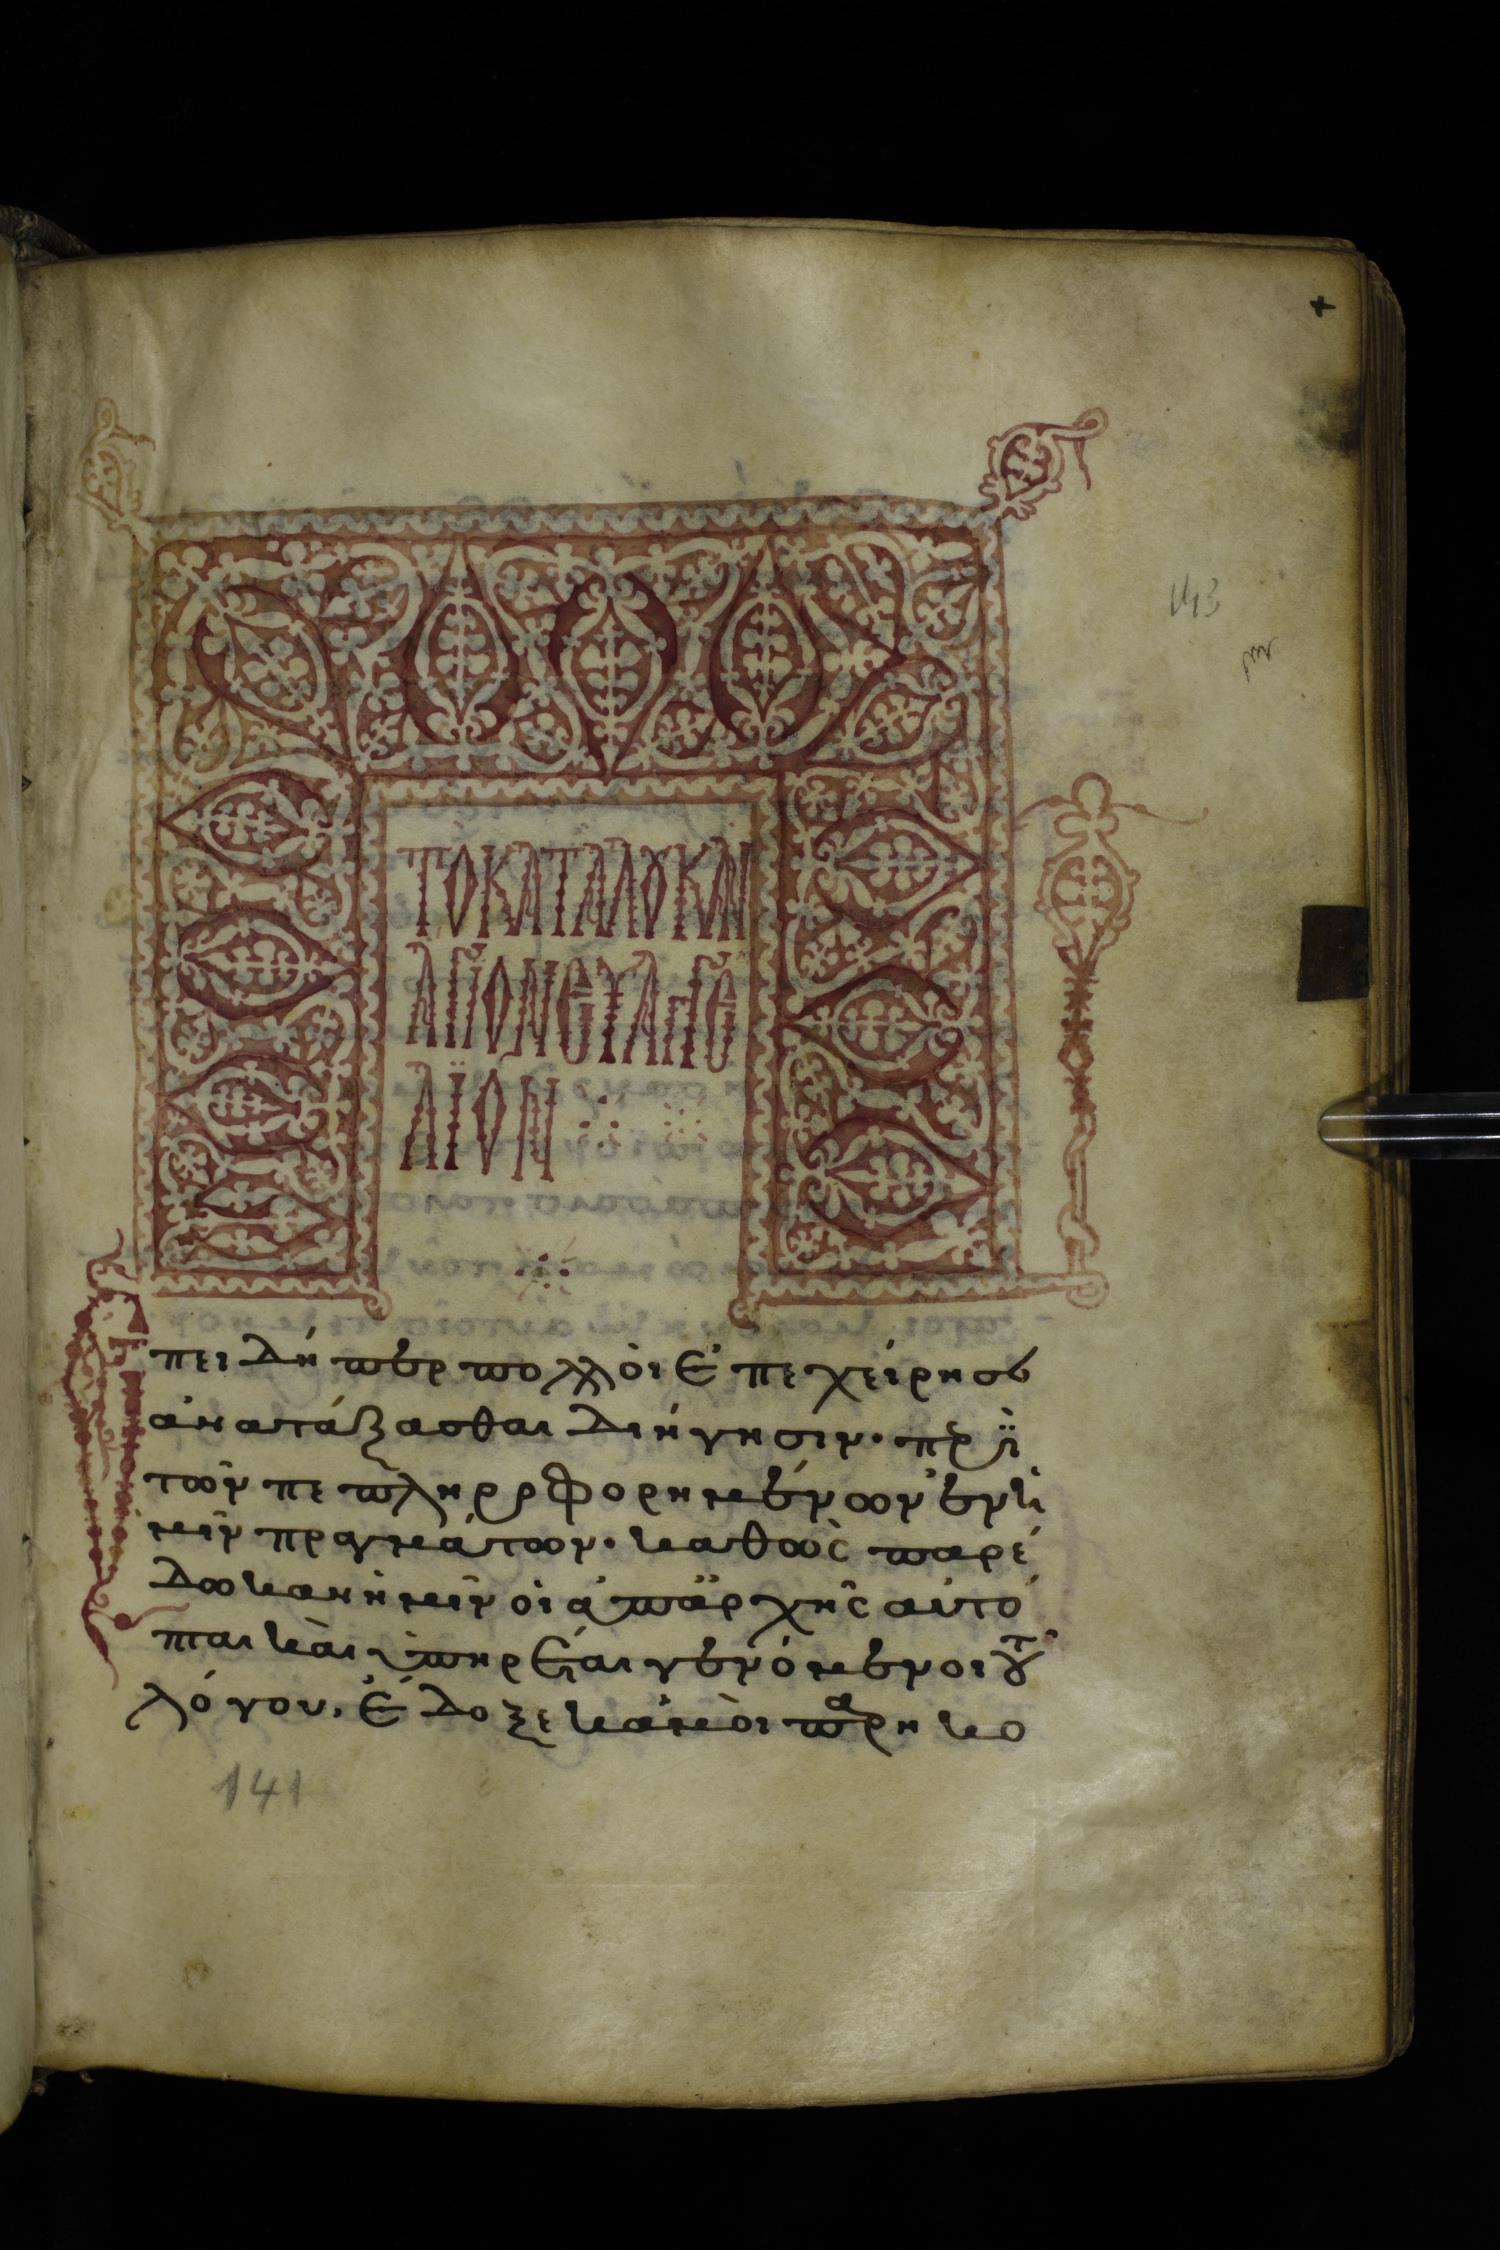 143
ΤΟ ΚΑΤΑ ΛΟΥΚΑΝ
ΑΓΙΟΝ ΕΥΑΓΓΕ
ΛΙΟΝ
Ἐπειδήπερ πολλοὶ ἐπεχείρησ
ἀνατάξασθαι διήγησιν· περὶ
τῶν πεπληροφορημένων ἐν ἡ
μῖν πραγμάτων· καθὼς παρέ
δωκαν ἡμῖν οἱ ἀπαρχῆς αὐτό
πται καὶ ὑπηρέται γενόμενοι τοῦ
λόγου, ἔδοξε κἀμοὶ παρηκο
141